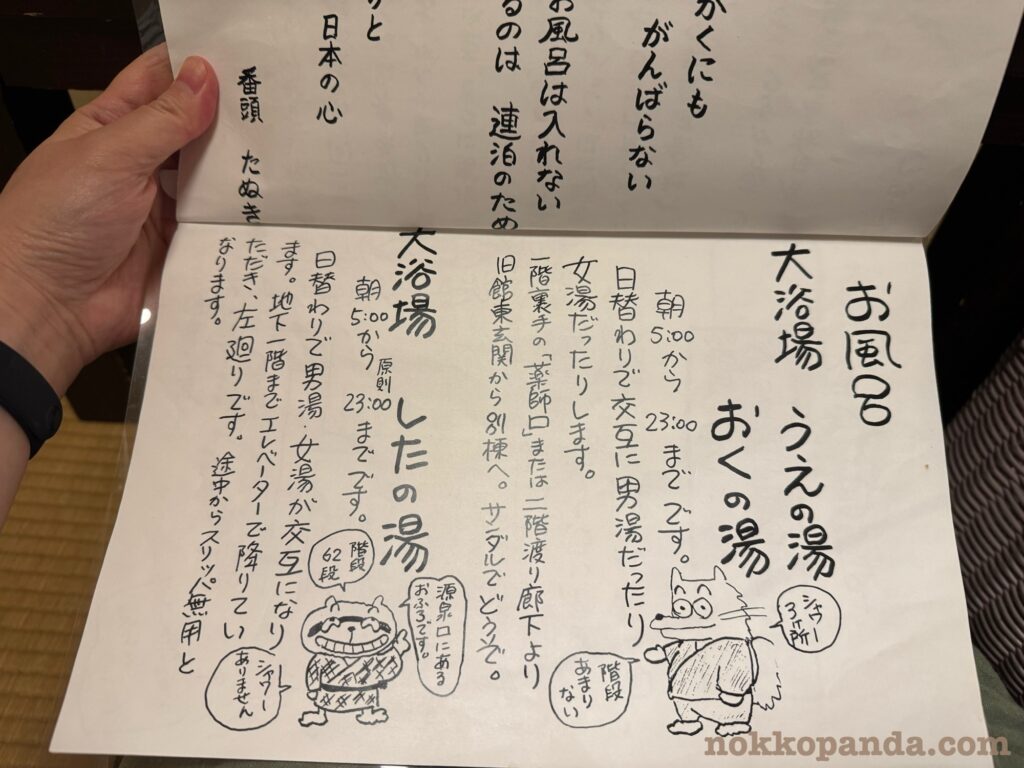 かくにも
がんばらない
お風呂は入れない
るのは 連泊のため
りと
日本の心
番頭 たぬき
お風呂
大浴場 うえの湯
おくの湯
朝5:00から23:00までです。
日替わりで交互に男湯だったり
女湯だったりします。
一階裏手の「薬師口」または二階渡り廊下より
旧館東玄関から別棟へ。サンダルでどうぞ。
シャワー3ヶ所
階段あまりない
大浴場 したの湯
朝5:00から原則23:00までです。
日替わりで男湯・女湯が交互になり
ます。地下一階までエレベーターで降りてい
ただき、左廻りです。途中からスリッパ無用と
なります。
階段62段
源泉口にあるおふろです。
シャワーありません
nokkopanda.com